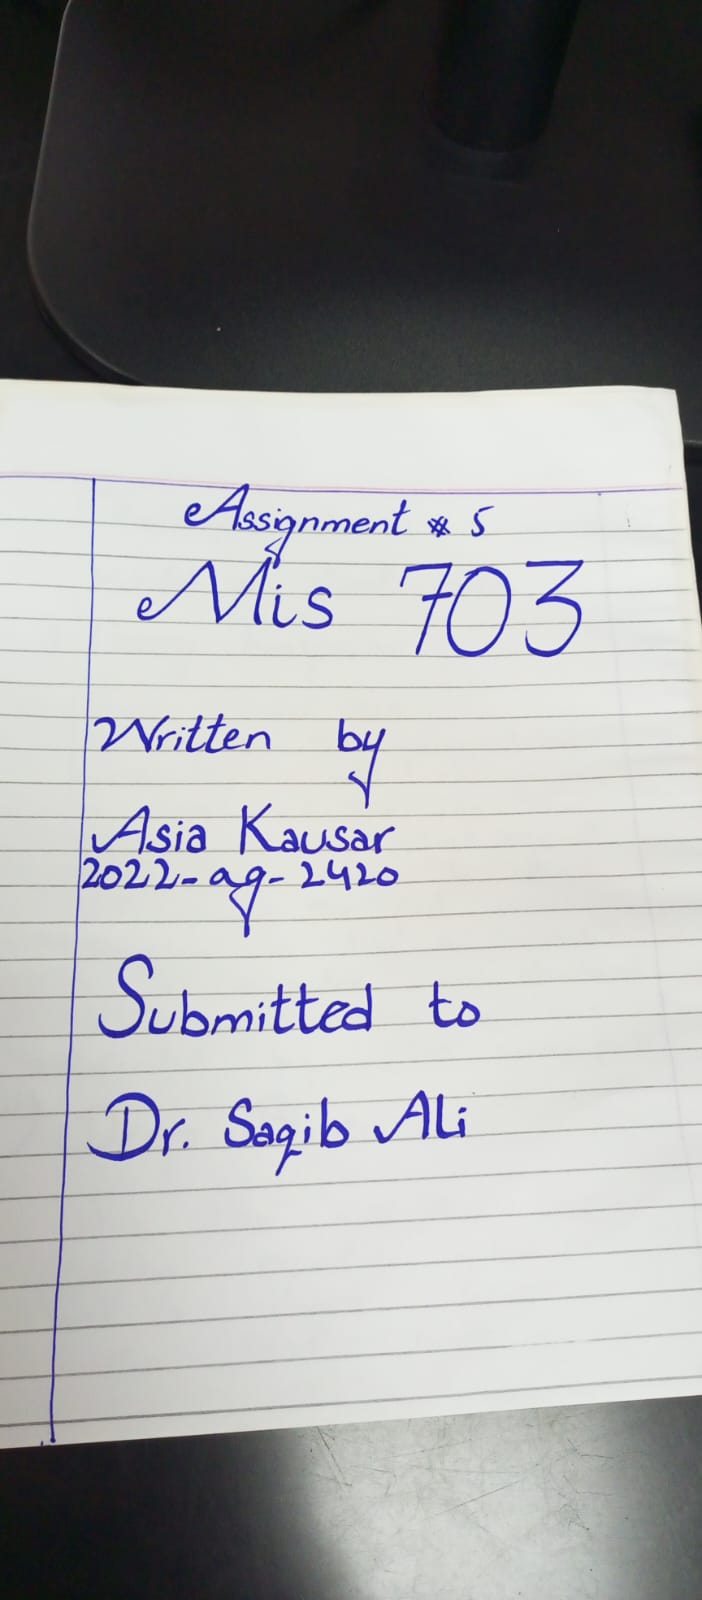 Assignment # 5
Mis 703
Written by
Asia Kausar
2022-ag-2420
Submitted to
Dr. Saqib Ali